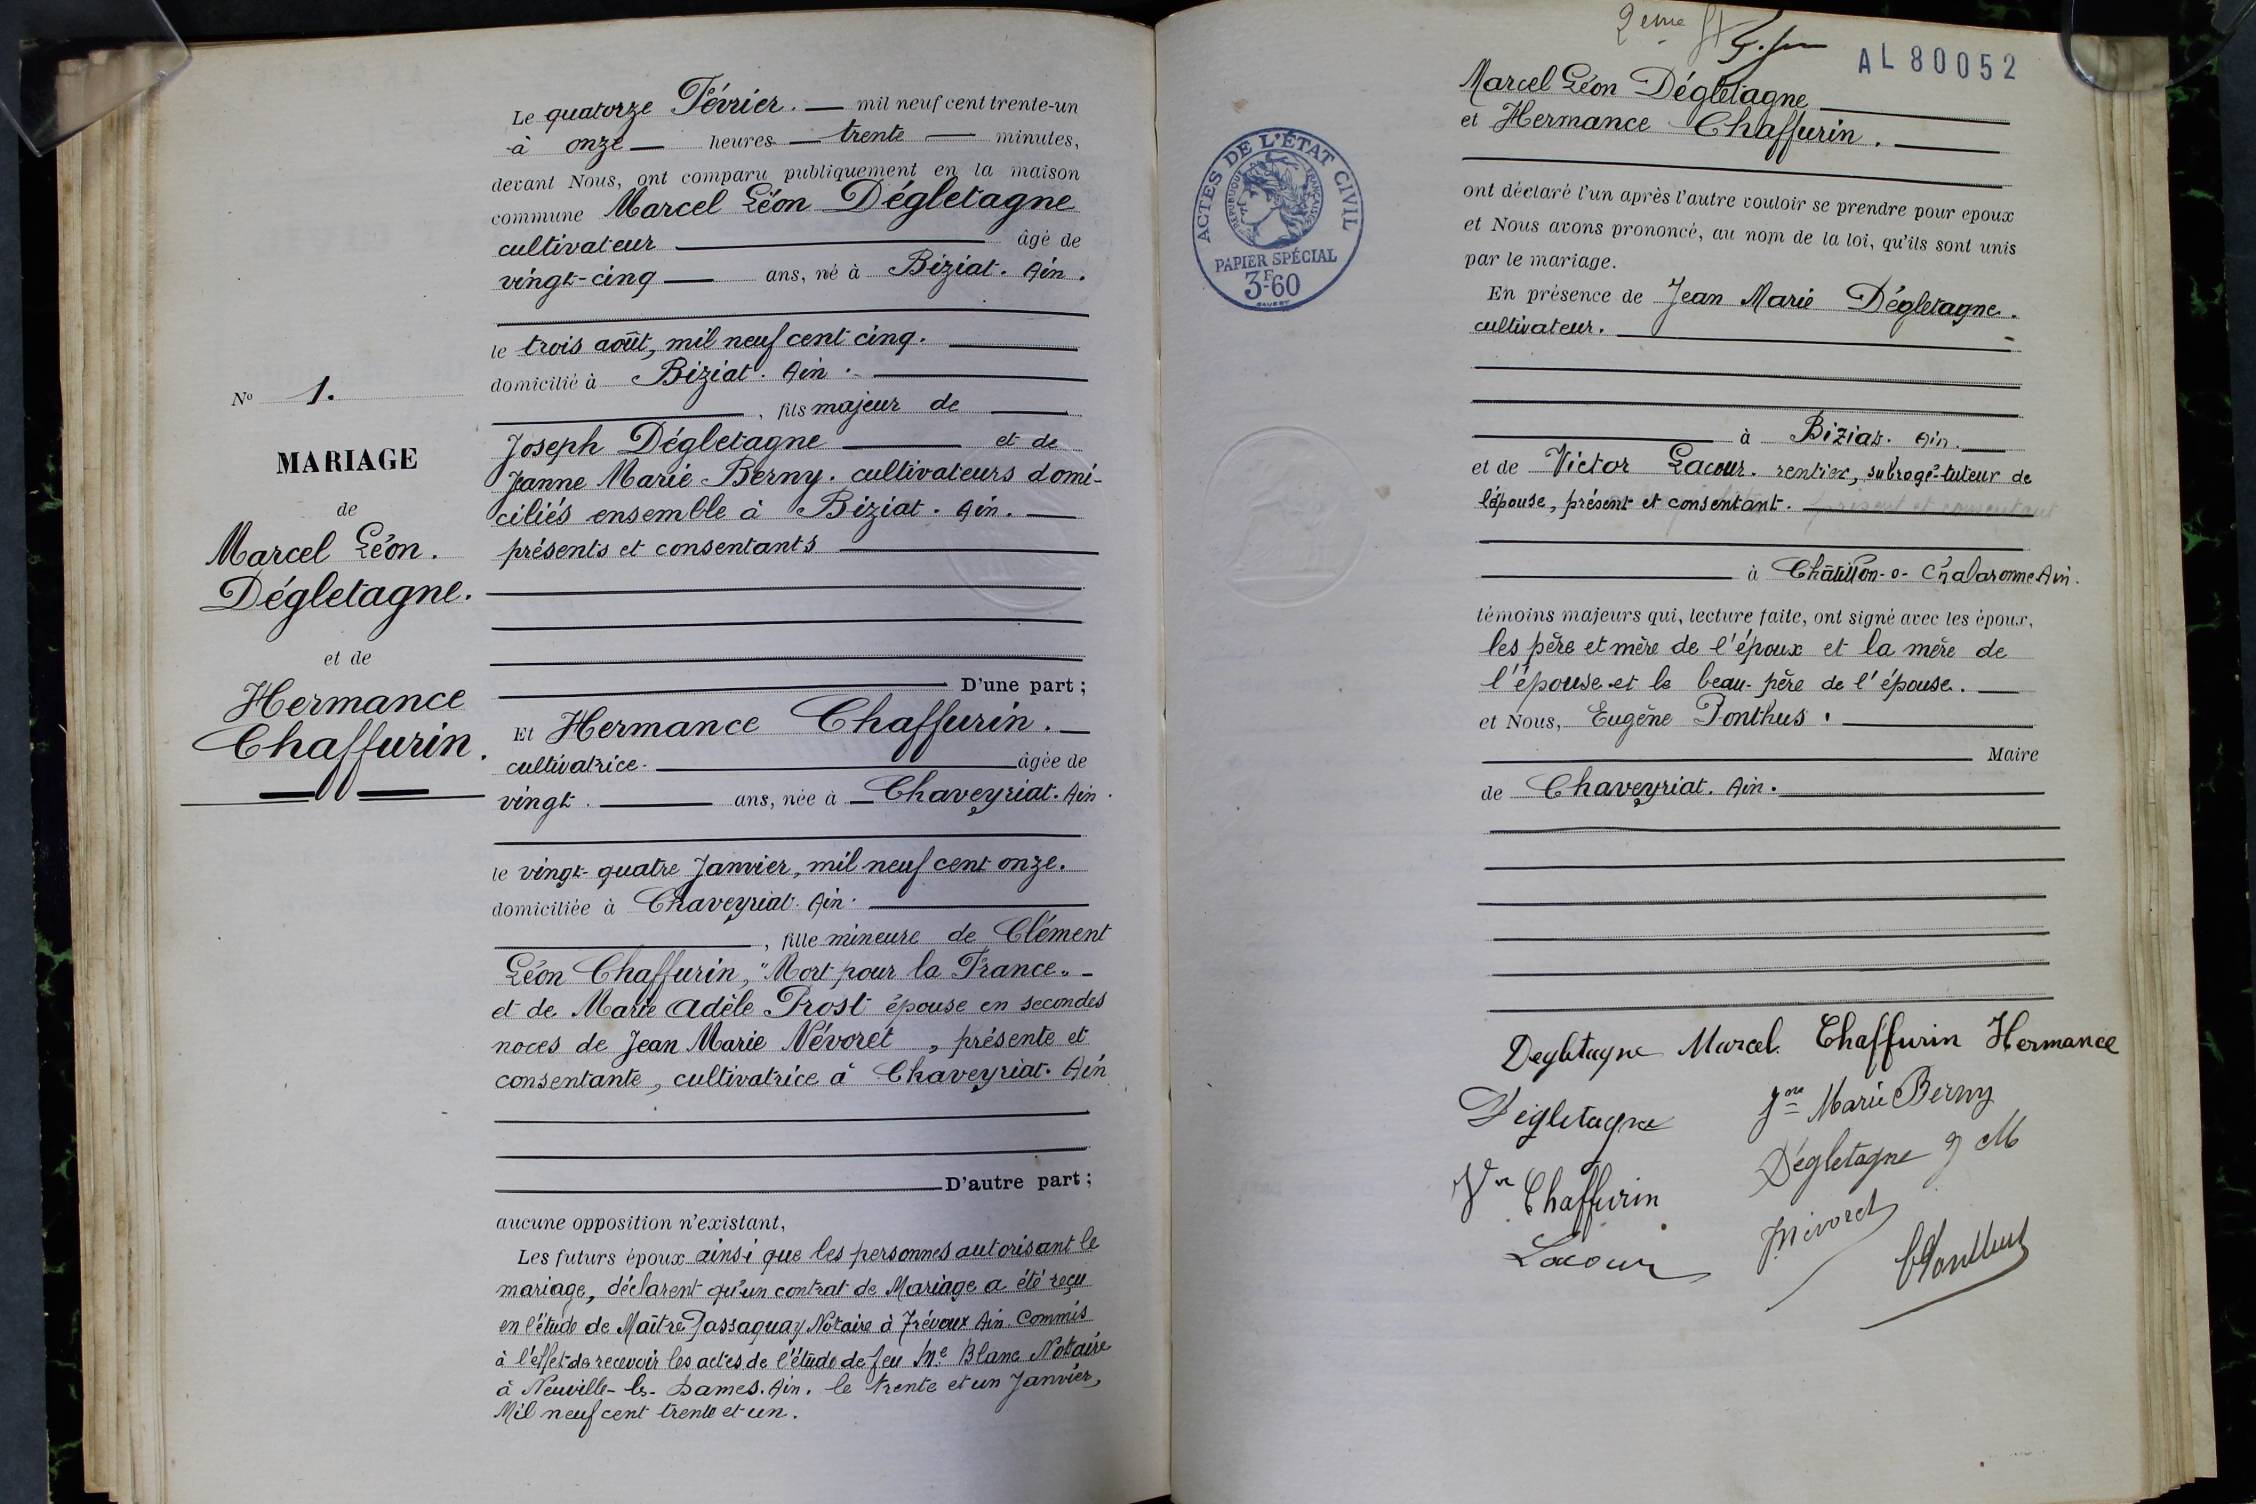 No 1.
MARIAGE
de
Marcel Léon.
Dégletagne.
et de
Hermance
Chaffurin.
Le quatorze Février. mil neuf cent trente-un
à onze heures trente minutes,
devant Nous, ont comparu publiquement en la maison
commune Marcel Léon Dégletagne
cultivateur âgé de
vingt-cinq ans, né à Biziat. Ain.
le trois août, mil neuf cent cinq.
domicilié à Biziat. Ain.
, fils majeur de
Joseph Dégletagne et de
Jeanne Marie Berny. cultivateurs domi-
ciliés ensemble à Biziat. Ain.
présents et consentants
D'une part;
Et Hermance Chaffurin.
cultivatrice. âgée de
vingt. ans, née à Chaveyriat. Ain.
le vingt-quatre Janvier, mil neuf cent onze.
domiciliée à Chaveyriat. Ain.
, fille mineure de Clément
Léon Chaffurin, "Mort pour la France"
et de Marie Adèle Prost épouse en secondes
noces de Jean Marie Névoret, présente et
consentante, cultivatrice à Chaveyriat. Ain
D'autre part;
aucune opposition n'existant,
Les futurs époux ainsi que les personnes autorisant le
mariage, déclarent qu'un contrat de Mariage a été reçu
en l'étude de Maître Passaquay Notaire à Trévoux Ain. Commis
à l'effet de recevoir les actes de l'étude de feu Me Blanc Notaire
à Neuville-les-Dames. Ain. le trente et un Janvier,
Mil neuf cent trente et un.
2eme
AL80052
Marcel Léon Dégletagne
et Hermance Chaffurin.
ACTES DE L'ÉTAT CIVIL
RÉPUBLIQUE FRANÇAISE
PAPIER SPÉCIAL
3F60
ont déclaré l'un après l'autre vouloir se prendre pour epoux
et Nous avons prononcé, au nom de la loi, qu'ils sont unis
par le mariage.
En présence de Jean Marie Dégletagne.
cultivateur.
à Biziat. Ain.
et de Victor Lacour. rentier, subrogé-tuteur de
l'épouse, présent et consentant.
à Châtillon-s-Chalaronne Ain.
témoins majeurs qui, lecture faite, ont signé avec les époux,
les père et mère de l'époux et la mère de
l'épouse et le beau-père de l'épouse.
et Nous, Eugène Ponthus.
Maire
de Chaveyriat. Ain.
Degletagne Marcel. Chaffurin Hermance
Dégletagne Jne Marie Berny
Dégletagne J M
Vve Chaffurin
Névoret
Lacour
Ponthus